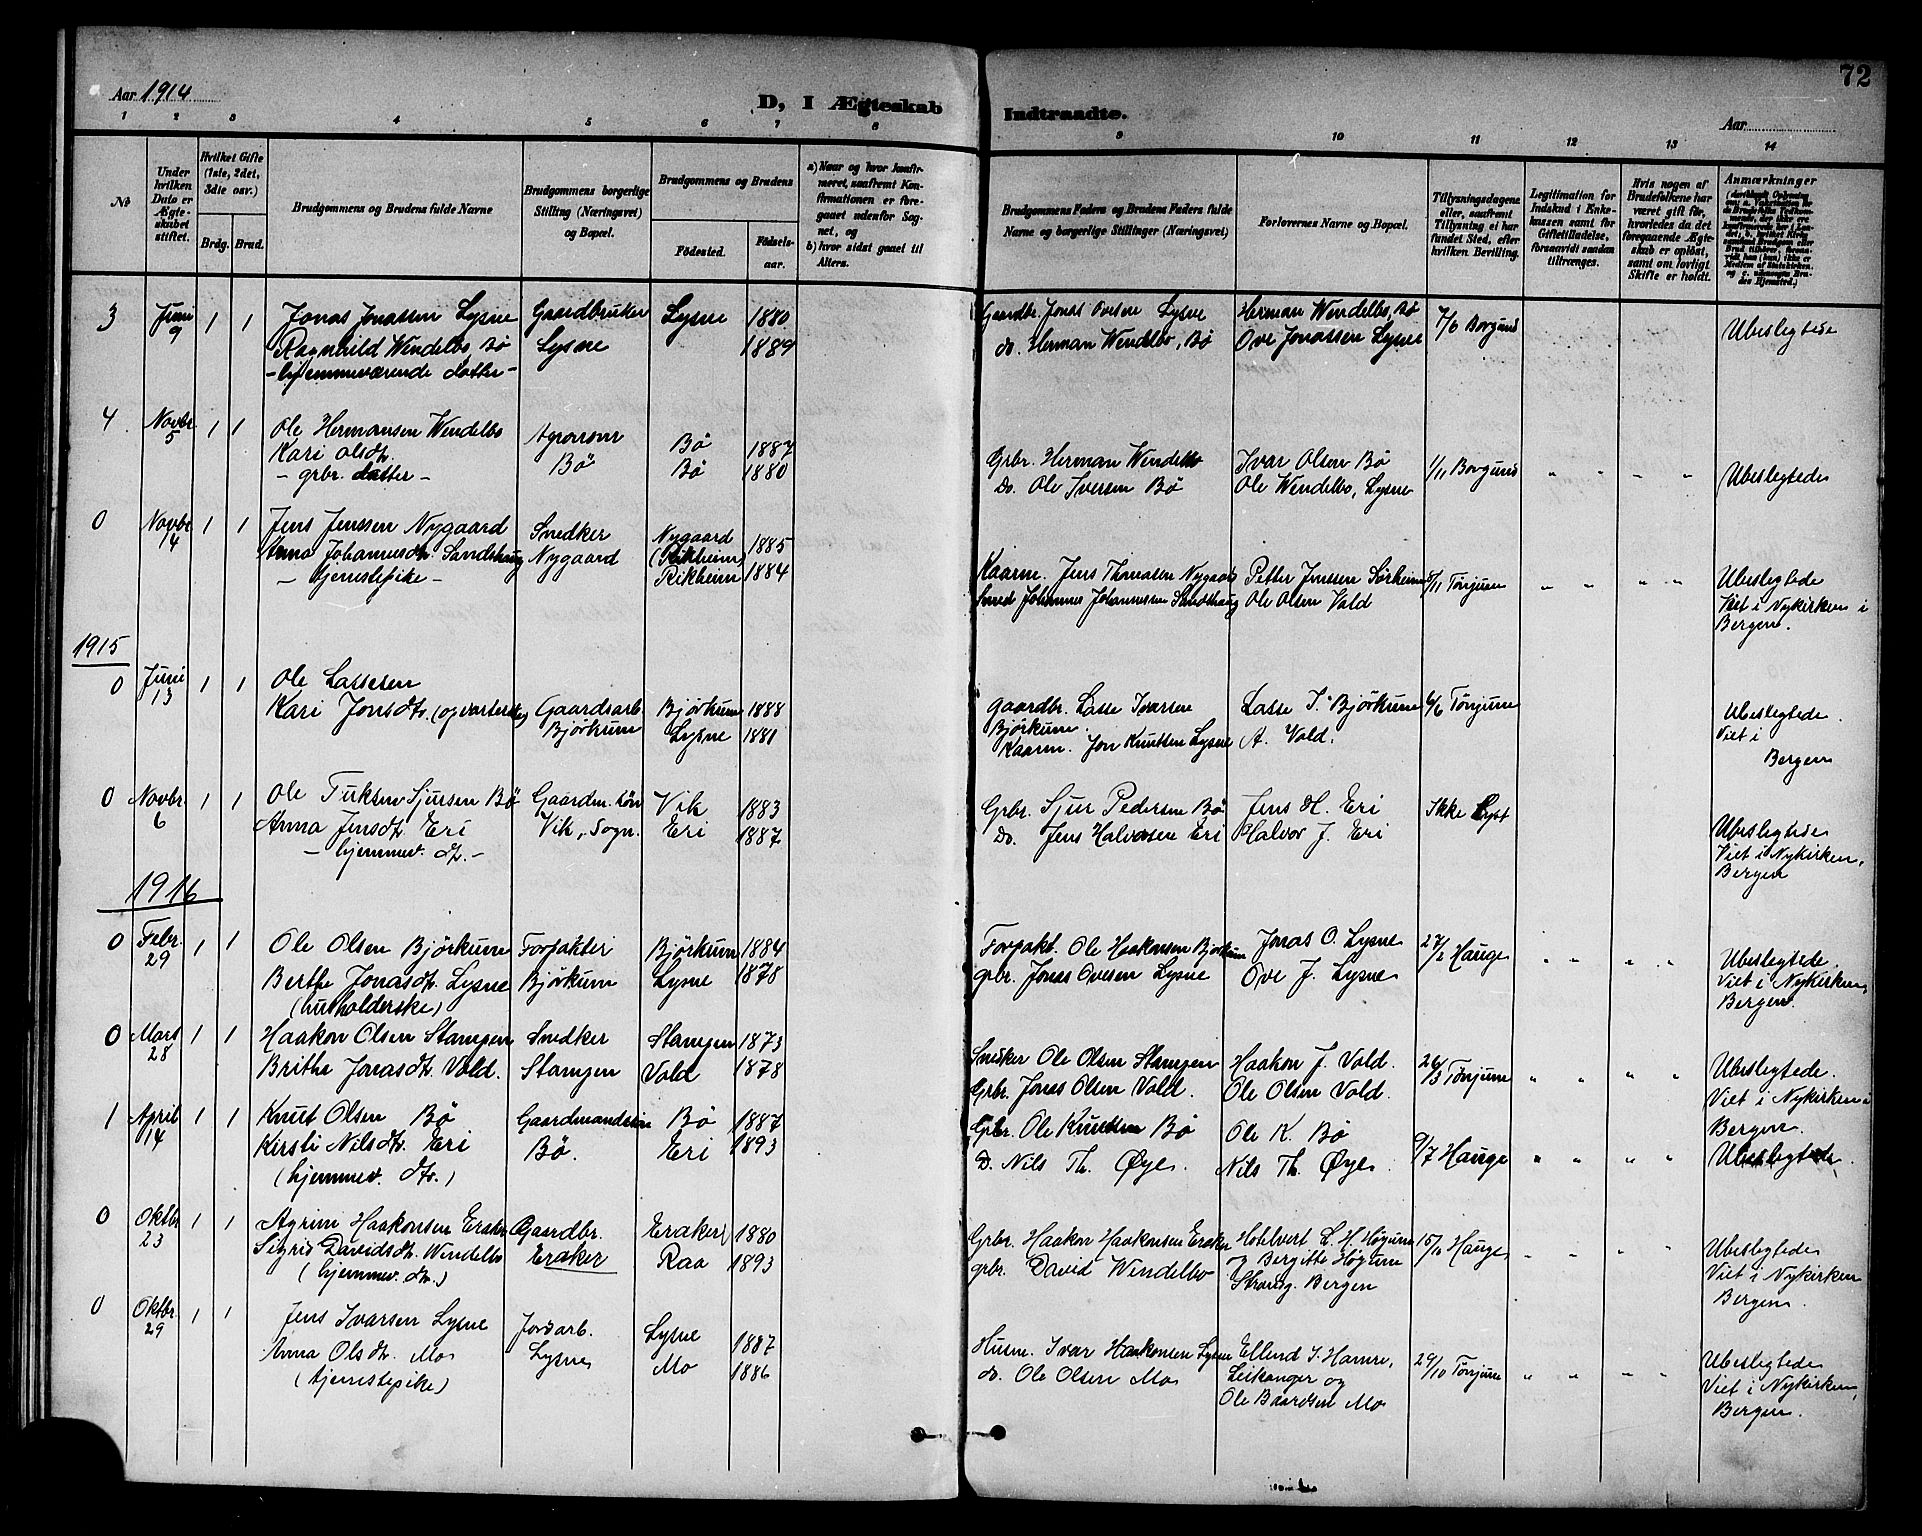 Aar 1914
D, I Ægteskab
Indtraadte.
Aar
72
1 2 3 4 5 6 7 8 9 10 11 12 13 14
No
Under hvilken Dato er Ægteskabet stiftet.
Hvilket Gifte (1ste, 2det, 3die osv.)
Brdg. Brud.
Brudgommens og Brudens fulde Navne
Brudgommens borgerlige Stilling (Næringsvei) og Bopæl.
Brudgommens og Brudens
Fødested. Fødselsaar.
a) Naar og hvor konfirmeret, saafremt Konfirmationen er foregaaet udenfor Sognet, og
b) hvor sidst gaaet til Alters.
Brudgommens Faders og Brudens Faders fulde Navne og borgerlige Stillinger (Næringsvei)
Forlovernes Navne og Bopæl.
Tillysningsdagene eller, saafremt Tillysning ei har fundet Sted, efter hvilken Bevilling.
Legitimation for Indskud i Enkekassen samt for Giftetilladelse, forsaavidt saadan tiltrænges.
Hvis nogen af Brudefolkene har været gift før, hvorledes da det foregaaende Ægteskab er opløst, samt om lovligt Skifte er holdt.
Anmærkninger
3 Juni 9 1 1 Jonas Jonassen Lysne Gaardbruker Lysne 1880 Gaardbr. Jonas Ovesen Lysne Herman Wendelbo, Bø 7/6 Borgund Ubeslegtede
Ragnhild Wendelbo, Bø Lysne 1889 do. Herman Wendelbo, Bø Ove Jonassen Lysne
- hjemmeværende datter -
4 Novbr. 5 1 1 Ole Hermansen Wendelbo Agronom Bø 1887 Grbr. Herman Wendelbo Ivar Olsen Bø 1/11 Borgund " " " " Ubeslegtede
Kari Olsdtr. Bø Bø 1880 Do. Ole Iversen Bø Ole Wendelbo, Lysne
- grbr. datter -
0 Novbr. 14 1 1 Jens Jenssen Nygaard Snedker Nygaard 1885 Kaarm. Jens Thomasen Nygaard Petter Jenssen Sørheim 8/11 Tønjum " " " " Ubeslegtede
Anna Johannesdtr. Sandshaug Nygaard (Rikheim) Smed Johannes Johannessen Sandshaug Ole Olsen Vold Viet i Nykirken i
- tjenestepike - Rikheim 1884 Bergen.
1915
0 Juni 13 1 1 Ole Lassesen
Kari Jonsdtr. Gaardsarb Bjørkum 1888 Gaardbr. Lasse Ivarsen Lasse I. Bjørkum 6/6 Tønjum Ubeslegtede.
Bjørkum Lysne 1881 Bjørkum. Viet i
Kaarm. Jon Knutsen Lysne A. Vold. Bergen
0 Novbr. 6 1 1 Ole Sjursen Bø Gaardm. søn Vik 1883 Grbr. Sjur Pedersen Bø Jens H. Eri Ikke lyst
Anna Jensdtr. Eri Vik, Sogn. Eri 1887 Do. Jens Halvorsen Eri Halvor J. Eri Ubeslegtede
- hjemmev. dtr. - Viet i Nykirken,
Bergen
1916
0 Febr. 29 1 1 Ole Olsen Bjørkum Forpakter Bjørkum 1884 Forpakt. Ole Haakonsen Bjørkum Jonas O. Lysne 27/2 Hauge " " " " Ubeslegtede.
Berthe Jonasdtr. Lysne Bjørkum Lysne 1878 grbr. Jonas Ovesen Lysne Ove J. Lysne Viet i Nykirken,
(husholderske) Bergen.
0 Mars 28 1 1 Haakon Olsen Stampen Snedker Stampen 1873 Snedker Ole Olsen Stampen Haakon J. Vold. 26/3 Tønjum " " " " Ubeslegtede.
Brithe Jonasdtr. Vold. Stampen Vold 1878 Grbr. Jonas Olsen Vold. Ole Olsen Vold. Viet i Nykirken i
Bergen.
1 April 14 1 1 Knut Olsen Bø Gaardmandssøn Bø 1887 Grbr. Ole Knutsen Bø Ole K. Bø
Kirsti Nilsdtr. Eri Bø. Eri 1893 D. Nils Th. Øye. Nils Th. Øye. 9/7 Hauge " " " " Ubeslegtede.
(hjemmev. dtr.)
0 Oktbr. 23 1 1 Agrim Haakonsen Eraker Gaardbr. Eraker 1880 Grbr. Haakon Haakonsen Eraker L. H. Høgum 15/10 Hauge " " " " Ubeslegtede
Sigrid Davidsdtr. Wendelbo Eraker Raa 1893 grbr. David Wendelbo og Bergitte Høgum Viet i Nykirken
(hjemmev. dtr.) Strandg. Bergen Bergen.
0 Oktbr. 29 1 1 Jens Ivarsen Lysne Jordarb. Lysne 1887 Husm. Ivar Haakonsen Lysne Ellend I. Hamre, 29/10 Tønjum " " " " Ubeslegtede
Anna Olsdtr. Mo Lysne Mo 1886 do. Ole Olsen Mo Leikanger og Viet i Nykirken,
(tjenestepike) Ole Baardsen Mo Bergen.